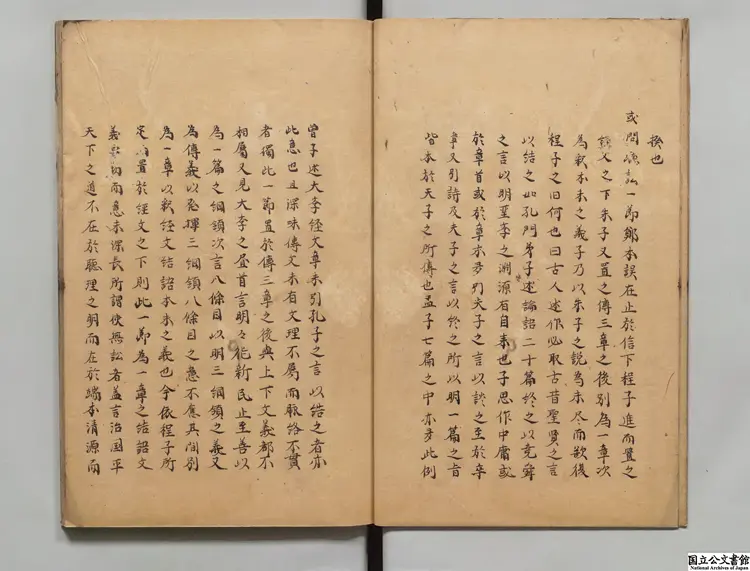 揆也
或問聽訟一節鄭本誤在止於信下程子進而置之
經文之下朱子又置之傳三章之後別為一章次
為釈本末之義子乃以朱子之說為未尽而欲復
程子之旧何也曰古人述作必取古昔聖賢之言
以結之如孔門弟子述論語二十篇終之以堯舜
之言以明聖李之渊源有自来也子思作中庸或
於章首或於章末多引夫子之言以訣之至於卒
章又引詩及夫子之言以終之所以明一篇之旨
皆本於夫子之所傳也孟子七篇之中亦多此例
曽子述大李経文章末引孔子之言以結之者亦
此意也且深味傳文未有文理不属而脈絡不貫
者獨此一節置於傳三章之後與上下文義都不
相属又見大李之昼首言明々德新民止至善以
為一篇之綱領次言八條目以明三綱領之義又
為傳義以発揮三綱領八條目之意不應其間別
為一章以釈経文結語本末之義也今依程子所
定而置於経文之下則此一節為一章之結語文
義而意未深長所謂使無訟者盖言治国平
天下之道不在於聽理之明而在於端本清源而
国立公文書館
National Archives of Japan